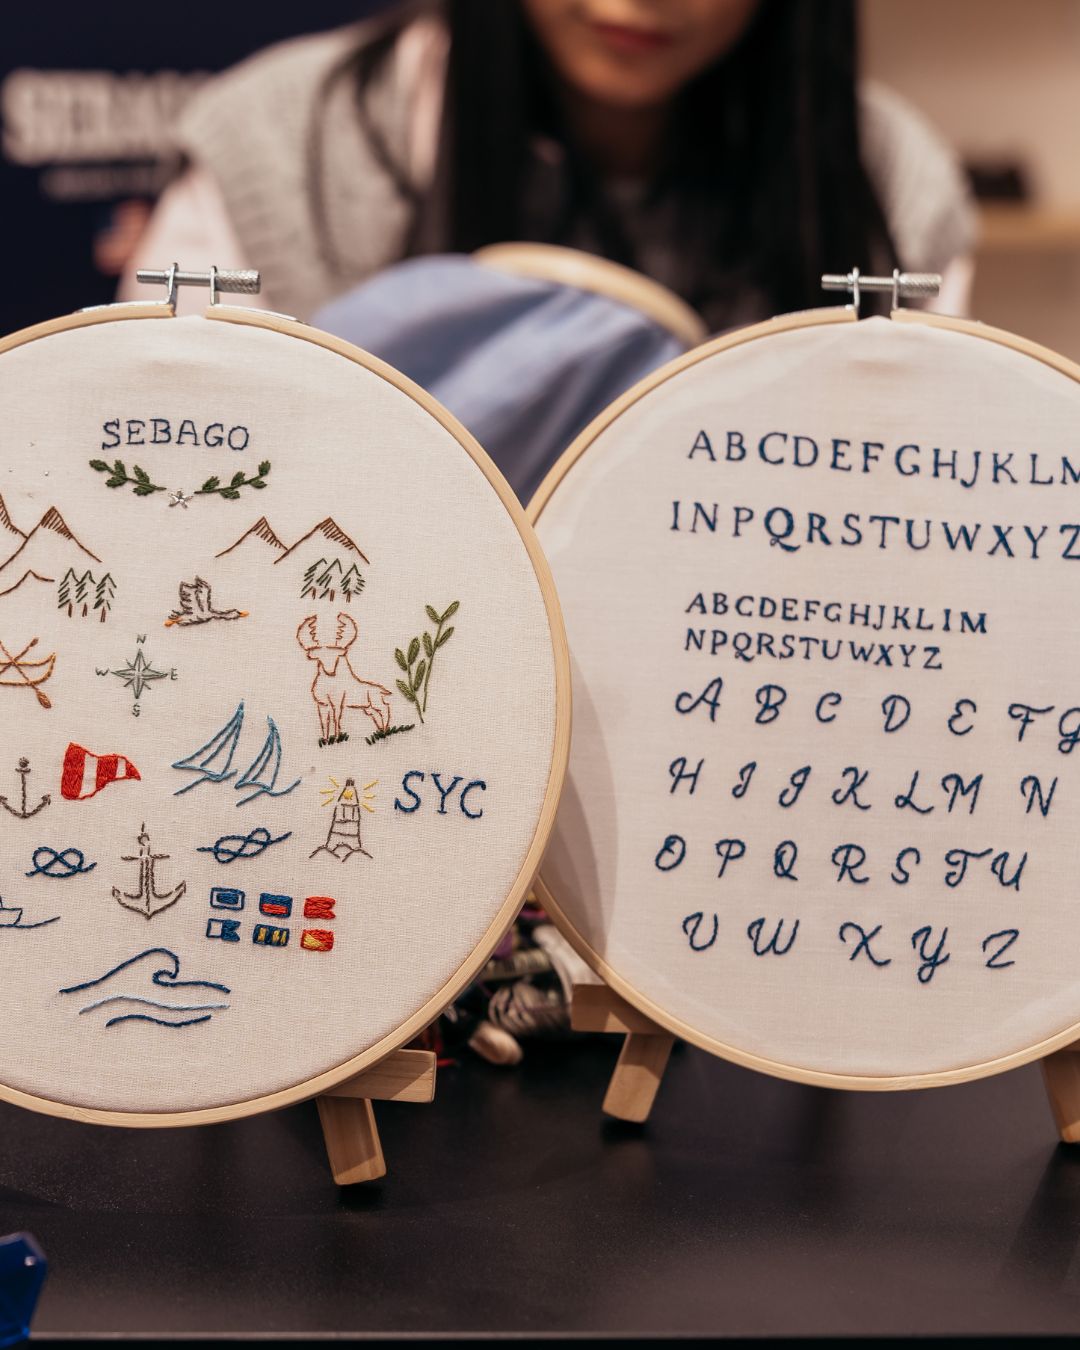 SEBAGO
SEBAGO
N
W E
S
SYC
ABCDEFGHJKLM
INPQRSTUWXYZ
ABCDEFGHJKLIM
NPQRSTUWXYZ
A B C D E F G
H I J K L M N
O P Q R S T U
V W X Y Z